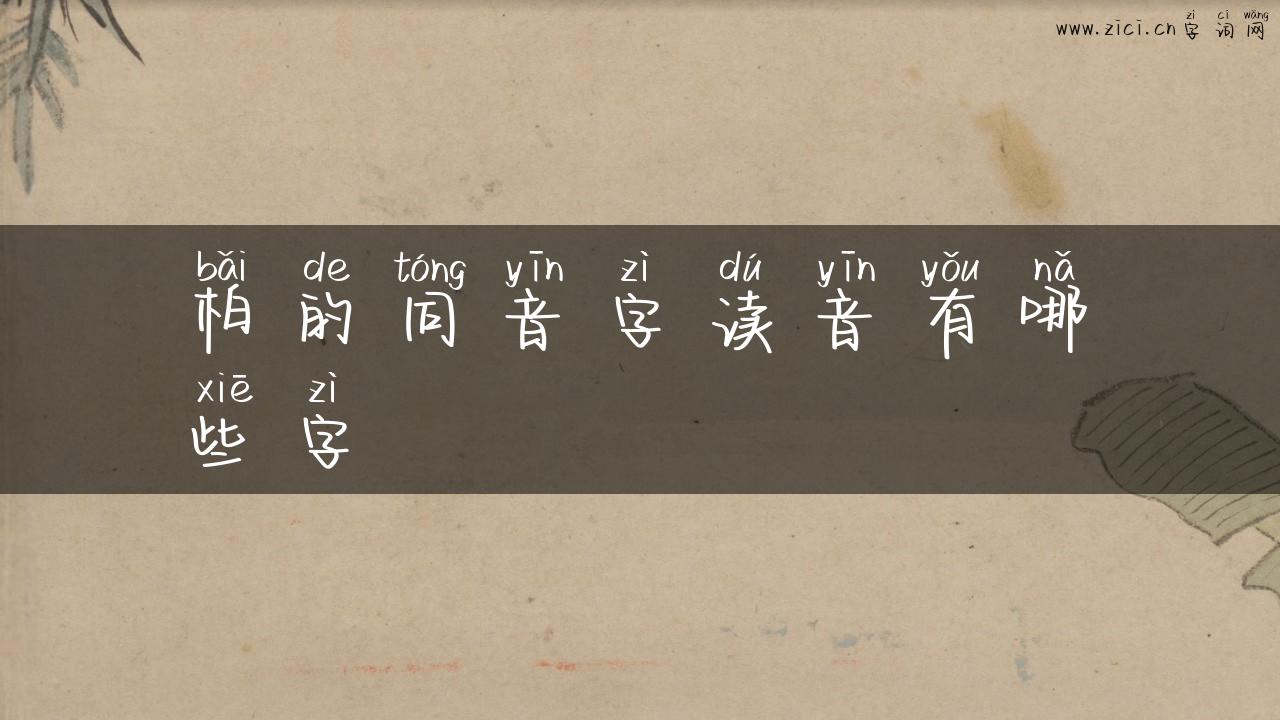 zì cí wǎng
www.zici.cn 字词网
bǎi de tóng yīn zì dú yīn yǒu nǎ
柏的同音字读音有哪
xiē zì
些字